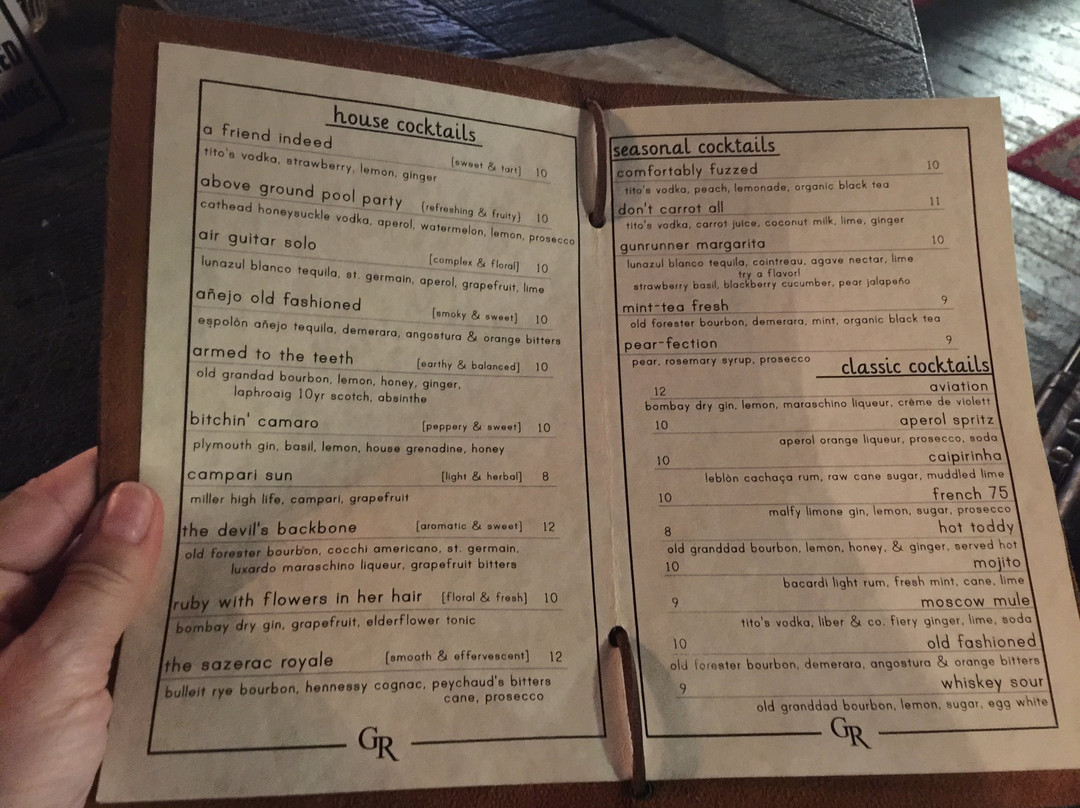 house cocktails
a friend indeed [sweet & tart] 10
tito's vodka, strawberry, lemon, ginger
above ground pool party [refreshing & fruity] 10
cathead honeysuckle vodka, aperol, watermelon, lemon, prosecco
air guitar solo [complex & floral] 10
lunazul blanco tequila, st. germain, aperol, grapefruit, lime
añejo old fashioned [smoky & sweet] 10
espolòn añejo tequila, demerara, angostura & orange bitters
armed to the teeth [earthy & balanced] 10
old grandad bourbon, lemon, honey, ginger,
laphroaig 10yr scotch, absinthe
bitchin' camaro [peppery & sweet] 10
plymouth gin, basil, lemon, house grenadine, honey
campari sun [light & herbal] 8
miller high life, campari, grapefruit
the devil's backbone [aromatic & sweet] 12
old forester bourbon, cocchi americano, st. germain,
luxardo maraschino liqueur, grapefruit bitters
ruby with flowers in her hair [floral & fresh] 10
bombay dry gin, grapefruit, elderflower tonic
the sazerac royale [smooth & effervescent] 12
bulleit rye bourbon, hennessy cognac, peychaud's bitters
cane, prosecco
GR
seasonal cocktails
comfortably fuzzed 10
tito's vodka, peach, lemonade, organic black tea
don't carrot all 11
tito's vodka, carrot juice, coconut milk, lime, ginger
gunrunner margarita 10
lunazul blanco tequila, cointreau, agave nectar, lime
try a flavor!
strawberry basil, blackberry cucumber, pear jalapeño
mint-tea fresh 9
old forester bourbon, demerara, mint, organic black tea
pear-fection 9
pear, rosemary syrup, prosecco
classic cocktails
12 aviation
bombay dry gin, lemon, maraschino liqueur, crème de violett
10 aperol spritz
aperol orange liqueur, prosecco, soda
10 caipirinha
leblòn cachaça rum, raw cane sugar, muddled lime
10 french 75
malfy limone gin, lemon, sugar, prosecco
8 hot toddy
old granddad bourbon, lemon, honey, & ginger, served hot
10 mojito
bacardi light rum, fresh mint, cane, lime
9 moscow mule
tito's vodka, liber & co. fiery ginger, lime, soda
10 old fashioned
old forester bourbon, demerara, angostura & orange bitters
9 whiskey sour
old granddad bourbon, lemon, sugar, egg white
GR